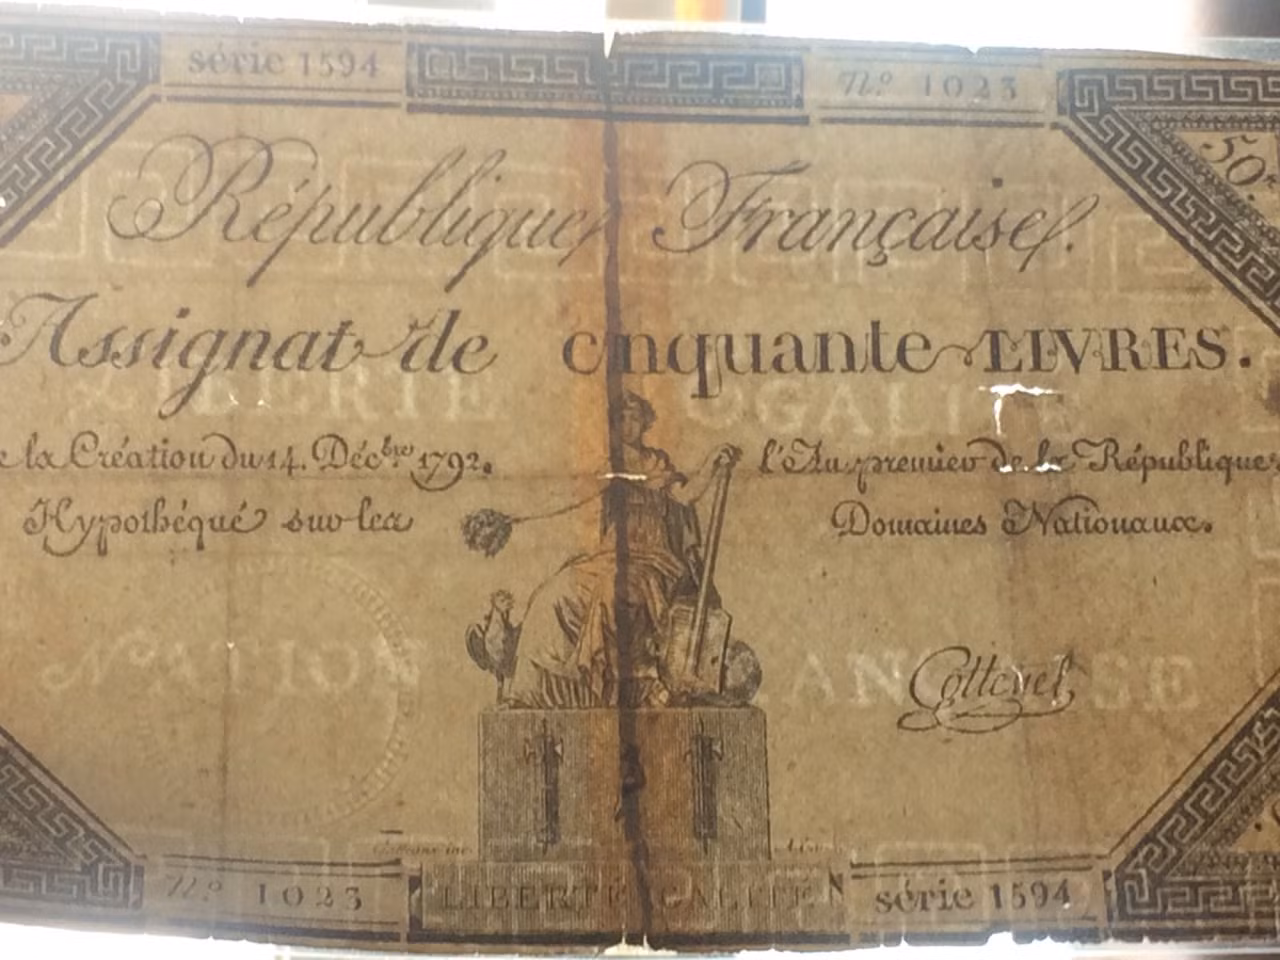 série 1594
N.º 1023
50
République Française.
Assignat de cinquante LIVRES.
LIBERTÉ ÉGALITÉ
de la Création du 14. Décbre 1792.
l'An premier de la République
Hypothéqué sur les
Domaines Nationaux.
NATION FRANÇAISE
Gatteaux inc.
N.º 1023
LIBERTÉ ÉGALITÉ
série 1594